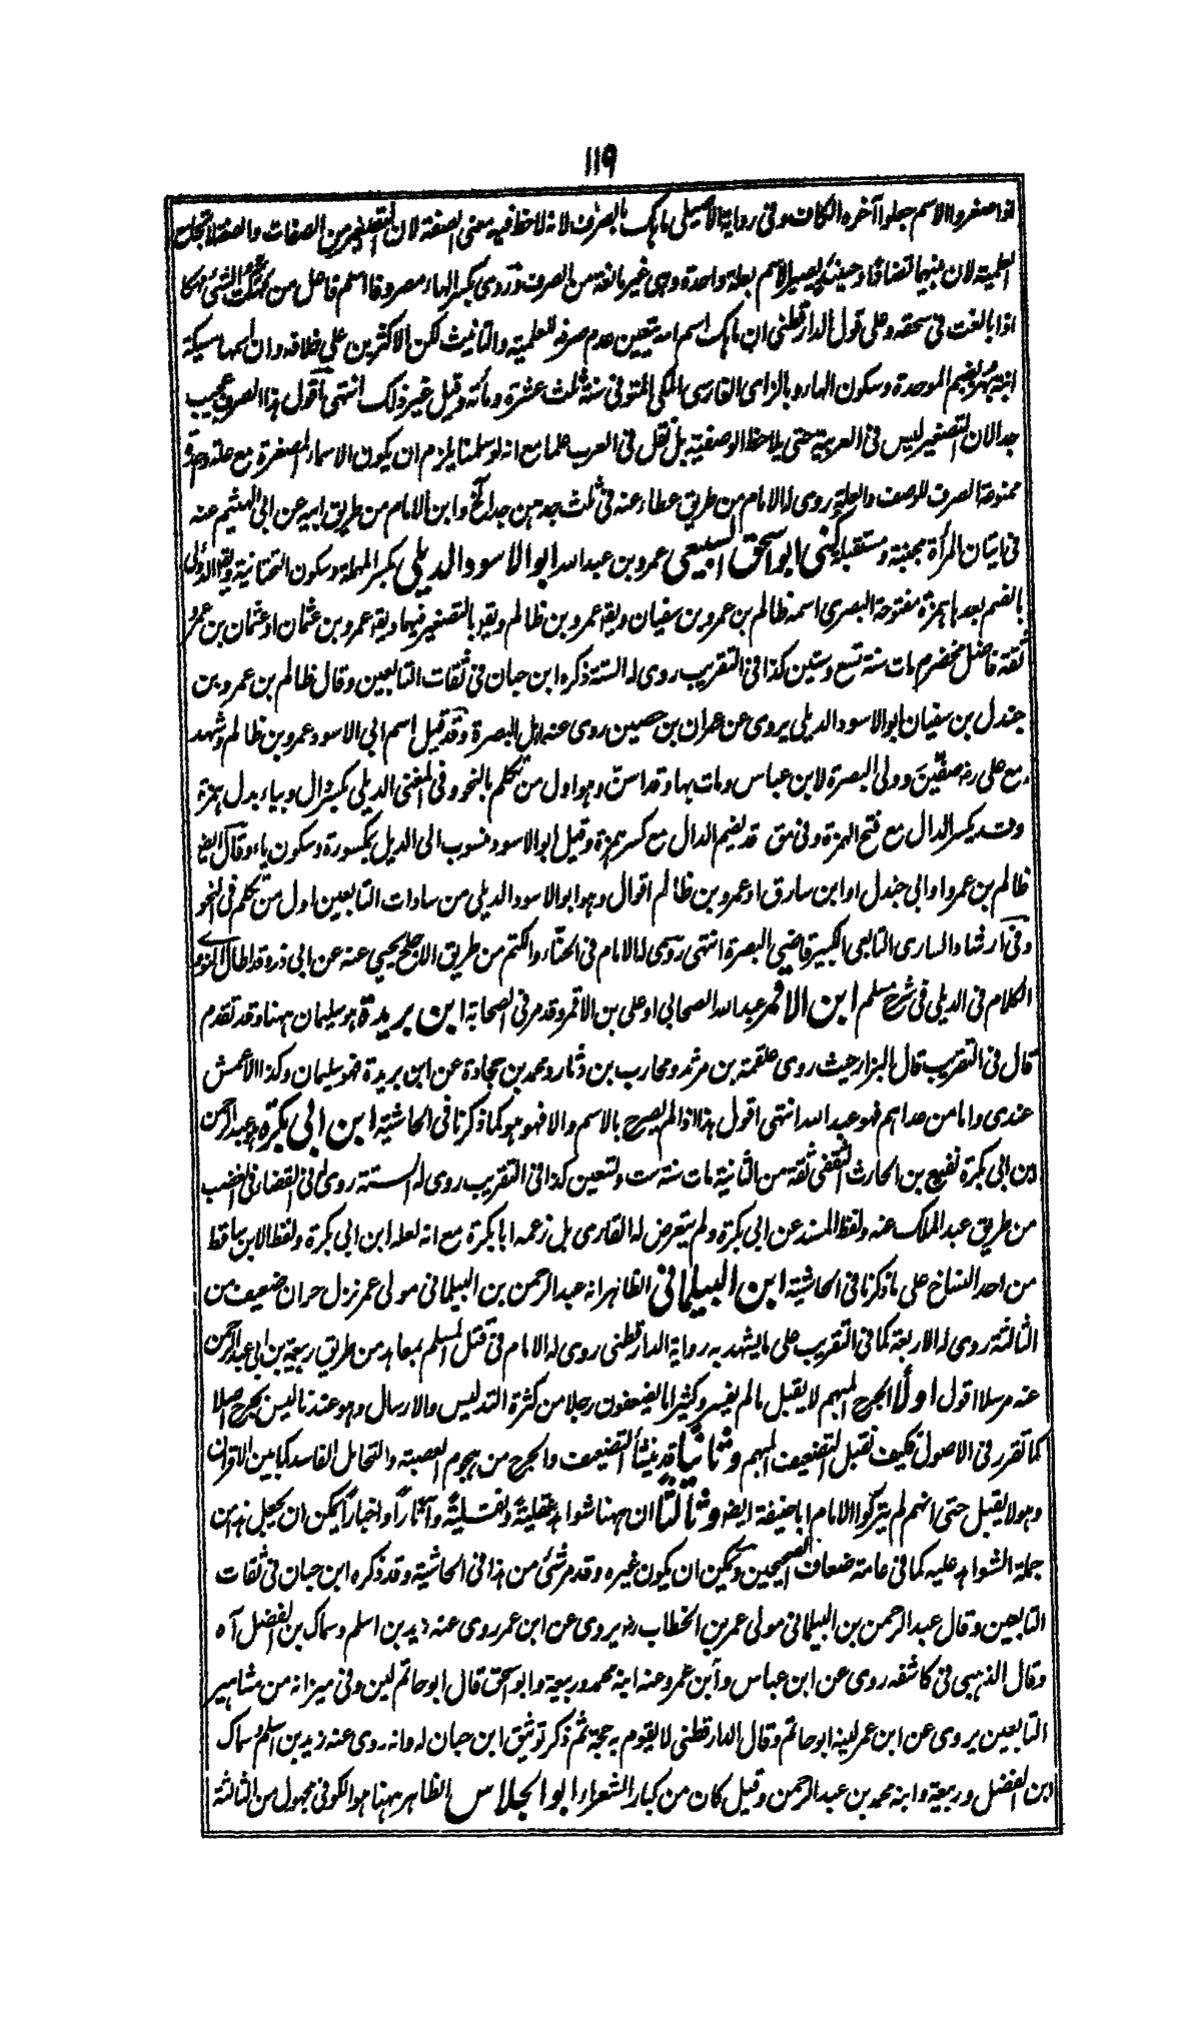 ١١٩
اذا صغروا الاسم جعلوا آخره الكاف وفى رواية الاصيلى ماهك بالصرف لانه لاحظ فيه معنى الصفة لان التصغير من الصفات والصفة لا تجامع
العلمية لان بينهما تضادا وحينئذ يصير الاسم بعلة واحدة وهى غير مانعة من الصرف وروى بكسر الهاء مصروفا اسم فاعل من مهكت الشئ مهكا
اذا بالغت فى سحقه وعلى قول الدارقطنى ان ماهك اسم امه يتعين عدم صرفه للعلمية والتانيث لكن الاكثرين على خلافه وان اسمها مسيكة
ابنة بهز بضم الموحدة وسكون الهاء وبالزاى الفارسى المكى المتوفى سنة ثلث عشرة ومائة وقيل غير ذلك انتهى اقول هذا الصرف عجيب
جدا لان التصغير ليس فى العربية حتى يلاحظ الوصفية بل نقل فى العرب علما مع انه لو سلمنا يلزم ان يكون الاسماء المصغرة مع علة
ممنوعة الصرف للوصف والعلمية روى له الامام من طريق عطاء عنه فى ثلث جدهن جد الخ وابن الامام من طريق ابيه عن ابى الهيثم عنه
فى اتيان المرأة مجبية ومستقبلة كنى ابو اسحق السبيعى عمرو بن عبد الله ابو الاسود الديلى بكسر المهملة وسكون التحتانية ويقه الدؤلى
بالضم بعدها همزة مفتوحة البصرى اسمه ظالم بن عمرو بن سفيان ويقه عمرو بن ظالم ويقه بالتصغير فيهما ويقه عمرو بن عثمان او عثمان بن عمرو
ثقة فاضل مخضرم مات سنة تسع وستين كذا فى التقريب روى له الستة ذكره ابن حبان فى ثقات التابعين وقال ظالم بن عمرو بن
جندل بن سفيان ابو الاسود الديلى يروى عن عمران بن حصين روى عنه اهل البصرة وقد قيل اسم ابى الاسود عمرو بن ظالم وشهد
مع على رض صفين وولى البصرة لابن عباس ومات بها وقد اسن وهو اول من تكلم بالنحو وفى المغنى الديلى بكسر دال وبياء بدل همزة
وقد يكسر الدال مع فتح الهمزة وفى مق قد يضم الدال مع كسر همزة وقيل ابو الاسود منسوب الى الديل بمكسورة وسكون ياء وقال ايضا
ظالم بن عمرو او ابى جندل او ابن سارق او عمرو بن ظالم اقوال وهو ابو الاسود الديلى من سادات التابعين اول من تكلم فى النحو
وفى ارشاد السارى التابعى الكبير قاضى البصرة انتهى روى له الامام فى الحناء والكتم من طريق الاجلح يحيى عنه عن ابى ذر وقد اطال النووى
الكلام فى الديلى فى شرح مسلم ابن الاقمر عبد الله الصحابى او على بن الاقمر وقد مر فى الصحابة ابن بريدة هو سليمان ههنا وقد تقدم
قال فى التقريب قال البزار حيث روى علقمة بن مرثد ومحارب بن دثار ومحمد بن جحادة عن ابن بريدة فهو سليمان وكذا الاعمش
عندى واما من عداهم فهو عبد الله انتهى اقول هذا اذا لم يصرح بالاسم والا فهو هو كما ذكرنا فى الحاشية ابن ابى بكرة هو عبد الرحمن
ابن ابى بكرة نفيع بن الحارث الثقفى ثقة من الثانية مات سنة ست وتسعين كذا فى التقريب روى له الستة روى له فى القضاء فى الغضب
من طريق عبد الملك عنه ولفظ المسند عن ابى بكرة ولم يتعرض له القارى بل زعمه ابا بكرة مع انه لعله ابن ابى بكرة ولفظ الابن ساقط
من احد النساخ على ما ذكرنا فى الحاشية ابن البيلمانى الظاهر انه عبد الرحمن بن البيلمانى مولى عمر نزل حران ضعيف من
الثالثة روى له الاربعة كما فى التقريب على ما يشهد به رواية الدارقطنى روى له الامام فى قتل المسلم بمعاهد من طريق ربيعة بن ابى عبد الرحمن
عنه مرسلا اقول اولا الجرح المبهم لا يقبل ما لم يفسر وكثيرا ما يضعفون رجلا من كثرة التدليس والارسال وهو عندنا ليس بجرح اصلا
كما تقرر فى الاصول فكيف نقبل التضعيف المبهم وثانيا قد ينشأ التضعيف والجرح من هجوم العصبية والتحامل الفاسد كما بين الاقران
وهو لا يقبل حتى انهم لم يتركوا الامام ابا حنيفة ايضه وثالثا ان ههنا شواهد عقلية ونقلية وآثارا واخبارا يمكن ان يجعل هذا من
جملة الشواهد عليه كما فى عامة ضعاف الصحيحين ويمكن ان يكون غيره وقد مر شئ من هذا فى الحاشية وقد ذكره ابن حبان فى ثقات
التابعين وقال عبد الرحمن بن البيلمانى مولى عمر بن الخطاب رض يروى عن ابن عمر روى عنه زيد بن اسلم وسماك بن الفضل آه
وقال الذهبى فى كاشفه روى عن ابن عباس وابن عمر وعنه ابنه محمد وربيعة وابو سحق قال ابو حاتم لين وفى ميزانه من مشاهير
التابعين يروى عن ابن عمر لينه ابو حاتم وقال الدارقطنى لا يقوم به حجة ثم ذكر توثيق ابن حبان له وانه روى عنه زيد بن اسلم وسماك
ابن الفضل وربيعة وابنه محمد بن عبد الرحمن وقيل كان من كبار الشعراء ابو الجلاس الظاهر ههنا هو الكوفى مجهول من الثالثة